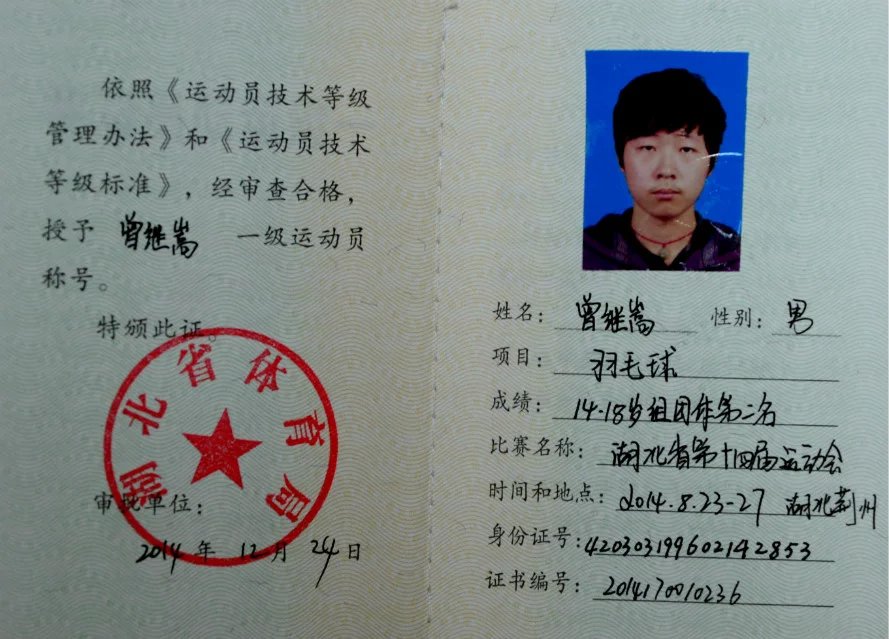 依照《运动员技术等级
管理办法》和《运动员技术
等级标准》，经审查合格，
授予 曾继嵩 一级运动员
称号。
特颁此证。
湖北省体育局
审批单位：
2014 年 12 月 24 日
姓名：曾继嵩 性别：男
项目：羽毛球
成绩：14-18岁组团体第二名
比赛名称：湖北省第十四届运动会
时间和地点：2014.8.23-27 湖北荆州
身份证号：420303199602142853
证书编号：2014170010236